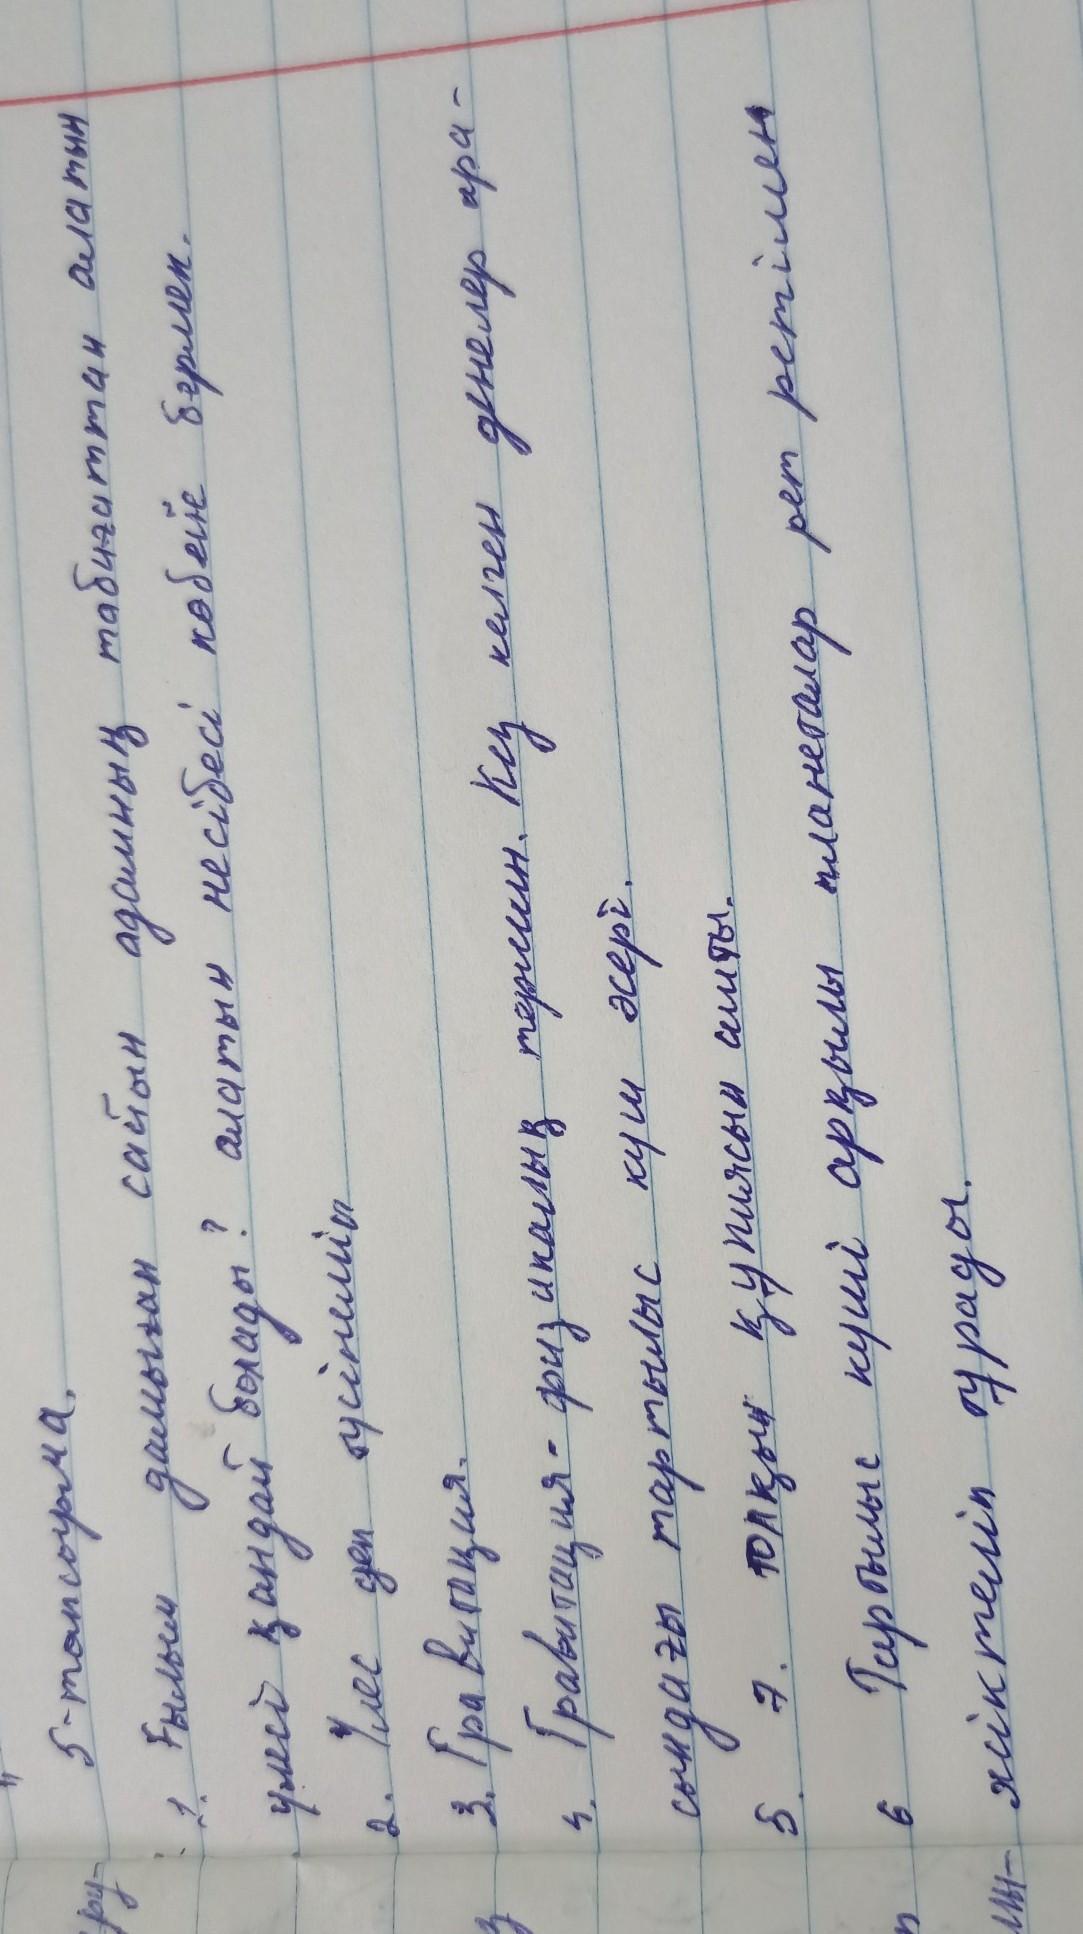 5-тапсырма.
1. Ғылым дамыған сайын адамның табиғаттан алатын
үлесі қандай болады? алатын несібесі көбейе бермек.
2. Үлес деп түсінемін
3. Гравитация.
4. Гравитация - физикалық термин. Кез келген денелер ара-
сындағы тартылыс күш әсері.
5. 7. толқын құпиясын ашты.
6 Тартылыс күші арқылы планеталар рет ретімен
жіктеліп тұрады.